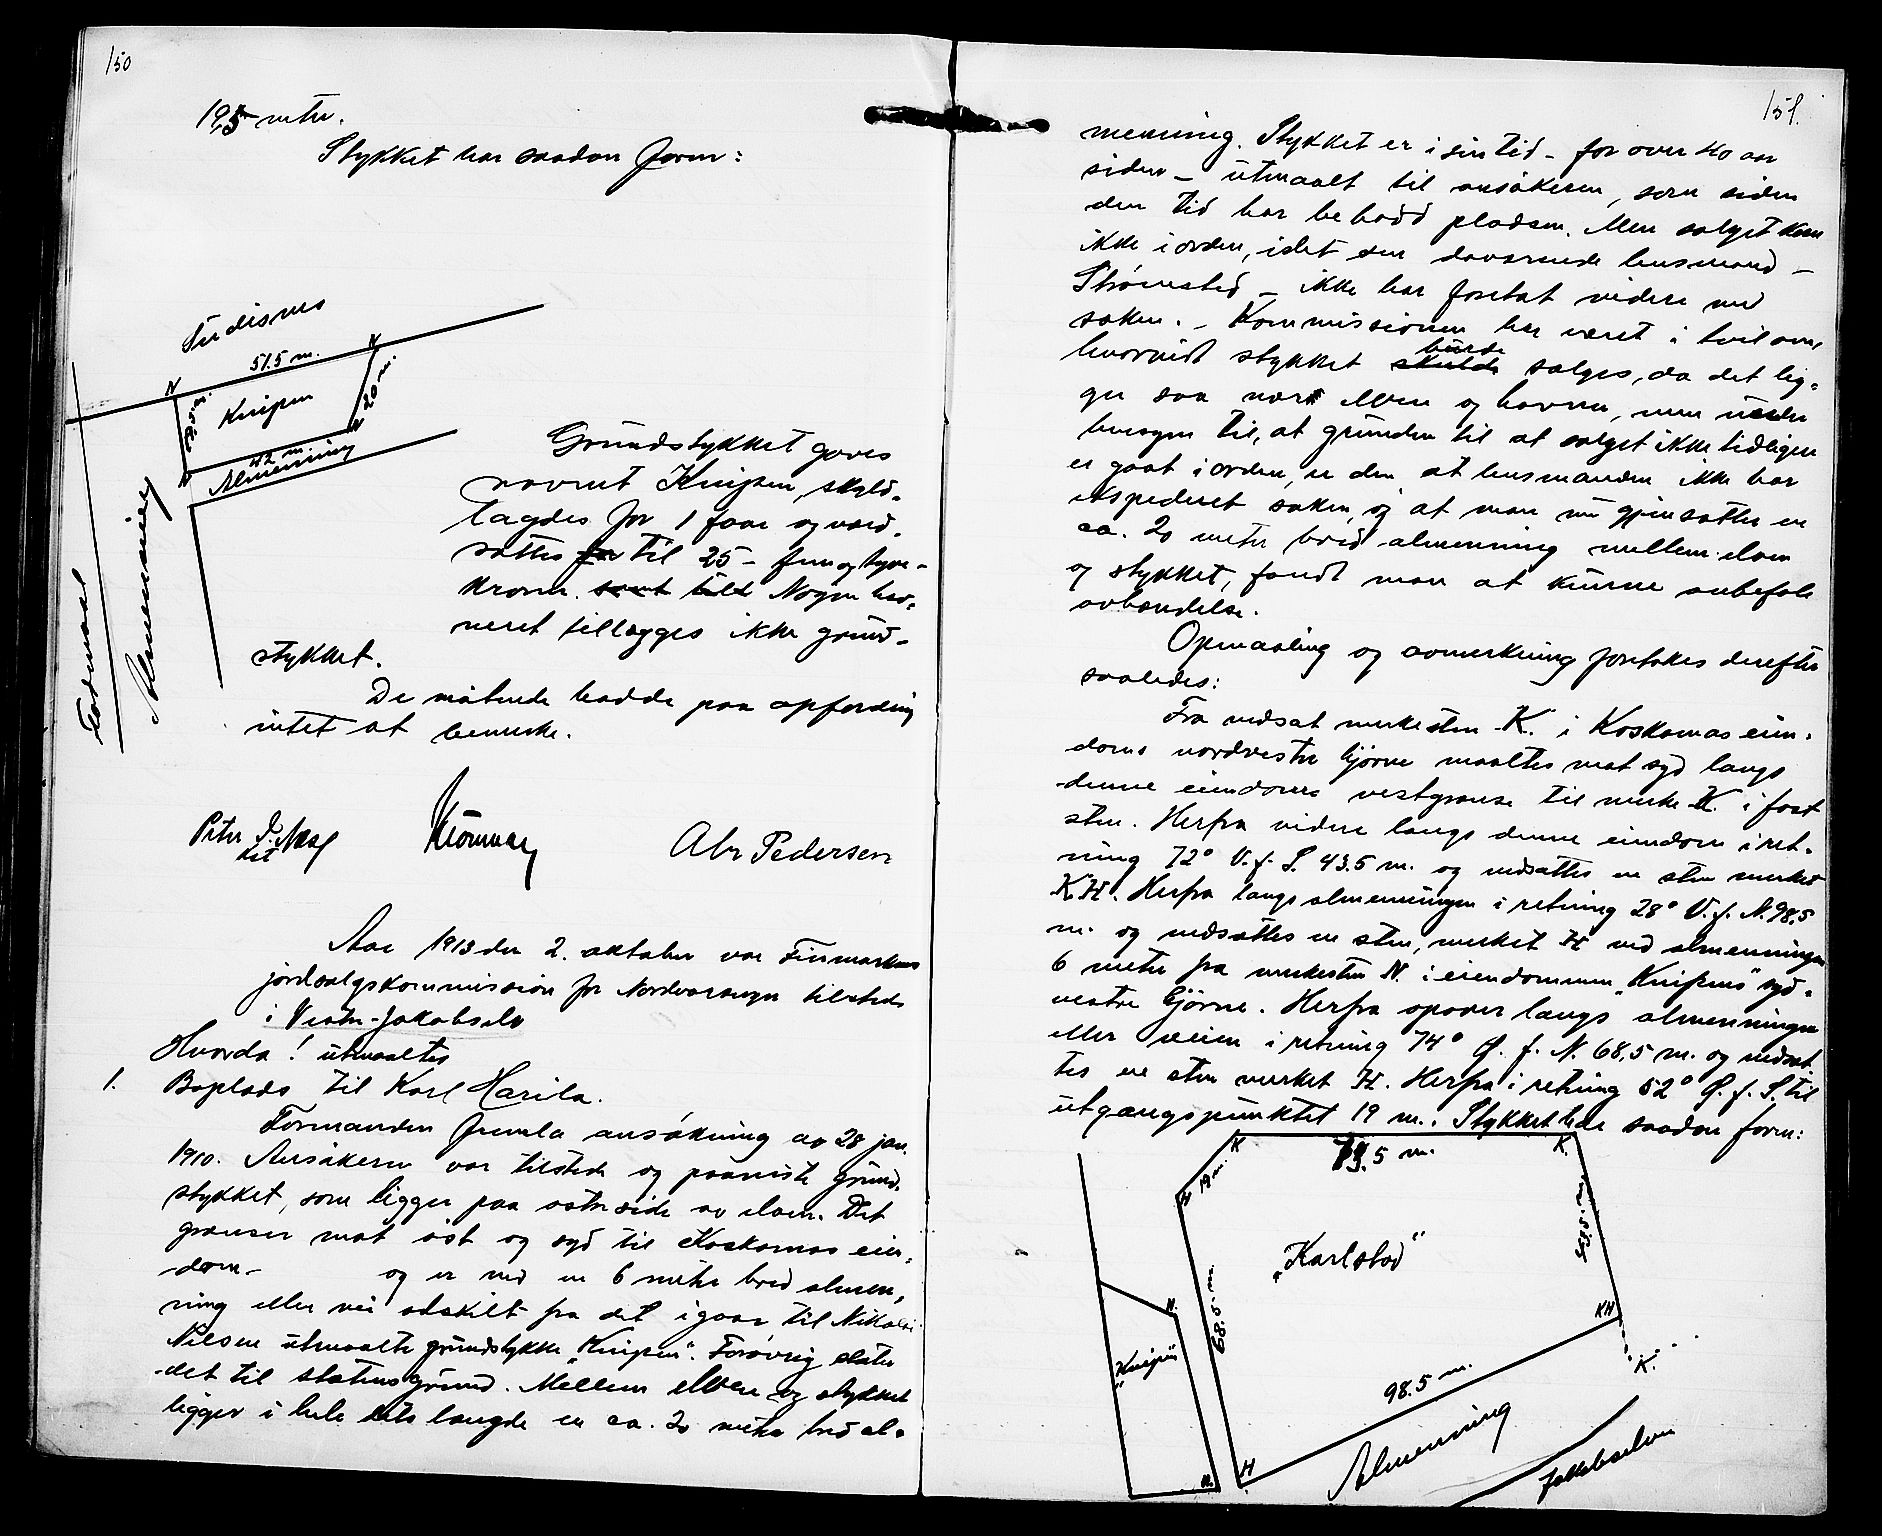 150
19,5 metr.
Stykket har saadan form:
51.5 m.
20 m.
Knipen
20 m.
42 m.
Almenning
Almenning
Flodmaal
Grundstykket gaves
navnet Knipen, skyld-
lagdes for 1 øre og værd-
sattes for til 25 - fem og tyve -
kroner. samt tilt Nogen hav-
neret tillægges ikke grund-
stykket.
De møtende hadde paa opfordring
intet at bemerke.
Abr Pedersen
Aar 1913 den 2. oktober var Finmarkens
jordsalgskommission for Nordvaranger tilstede
i Vestre-Jakobselv
Hvorda! utmaaltes
1. Boplads til Karl Harila.
Formanden fremla ansøkning av 28 jan.
1910. Ansøkeren var tilstede og paaviste grund-
stykket, som ligger paa østre side av elven. Det
grænser mot øst og syd til Koskamas eien-
dom - og er ved en 6 meter bred almen-
ning eller vei adskilt fra det igaar til Nikolai
Nilsen utmaalte grundstykke "Knipen". Forøvrig støter
det til statens grund. Mellem elven og stykket
ligger i hele dets længde en ca. 20 meter bred al-
151.
menning. Stykket er i sin tid - for over 40 aar
siden - utmaalt til ansøkeren, som siden
den tid har bebodd pladsen. Men salget kom
ikke i orden, idet den daværende lensmand -
Strømsted - ikke har foretat videre med
saken. - Kommissionen har været i tvil om,
hvorvidt stykket skulde burde sælges, da det lig-
ger saa nær elven og havnen, men under
hensyn til, at grunden til at salget ikke tidligere
er gaat i orden, er den, at lensmanden ikke har
ekspederet saken, og at man nu gjensatte en
ca. 20 meter bred almenning mellem elven
og stykket, fandt man at kunne anbefale
avhændelse.
Opmaaling og avmerkning foretokes derefter
saaledes:
Fra nedsat merkesten K. i Koskamas eien-
doms nordvestre hjørne maaltes mot syd langs
denne eiendoms vestgrense til merke K. i fast
sten. Herfra videre langs denne eiendom i ret-
ning 72° V. f. S. 43.5 m. og nedsattes en sten merket
K.H. Herfra langs almenningen i retning 28° V. f. N. 98,5
m. og nedsattes en sten, merket H ved almenningen
6 meter fra merkesten N. i eiendommen "Knipens" syd-
vestre hjørne. Herfra opover langs almenningen
eller veien i retning 74° Ø. f. N. 68,5 m. og nedsat-
tes en sten merket H. Herfra i retning 52° Ø. f. S. til
utgangspunktet 19 m. Stykket har saadan form:
K
K.
H
19 m.
43.5 m.
"Karlstad"
68.5 m.
KH
"K."
N.
"Knipen"
98.5 m.
N.
H
Almenning
Jakobselven